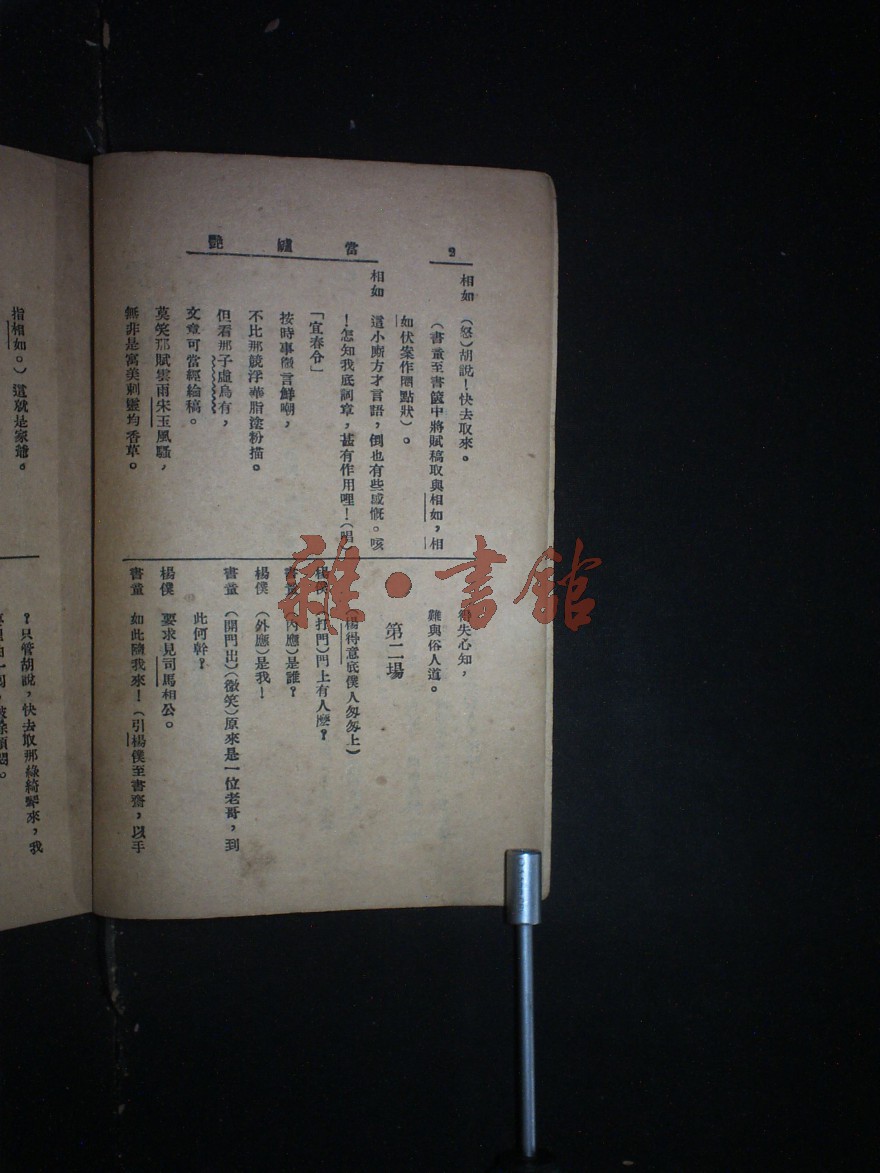 9
當罏艷
相如　(怒)胡說!快去取來。
(書童至書篋中將賦稿取與相如,相
如伏案作圈點狀)。
相如　這小廝方才言語,倒也有些感慨。咳
!怎知我底詞章,甚有作用哩!(唱
「宜春令」
按時事微言鮮嘲,
不比那競浮華脂塗粉描。
但看那子虛烏有,
文章可當經綸稿。
莫笑那賦雲雨宋玉風騷,
無非是寓美刺靈均香草。
得失心知,
難與俗人道。
第二場
(楊得意底僕人匆匆上)
楊僕　(打門)門上有人麽?
書童　(內應)是誰?
楊僕　(外應)是我!
書童　(開門出)(微笑)原來是一位老哥,到
此何幹?
楊僕　要求見司馬相公。
書童　如此隨我來!(引楊僕至書齋,以手
指相如。)這就是家爺。
?只管胡說,快去取那綠綺琴來,我
雜·書館